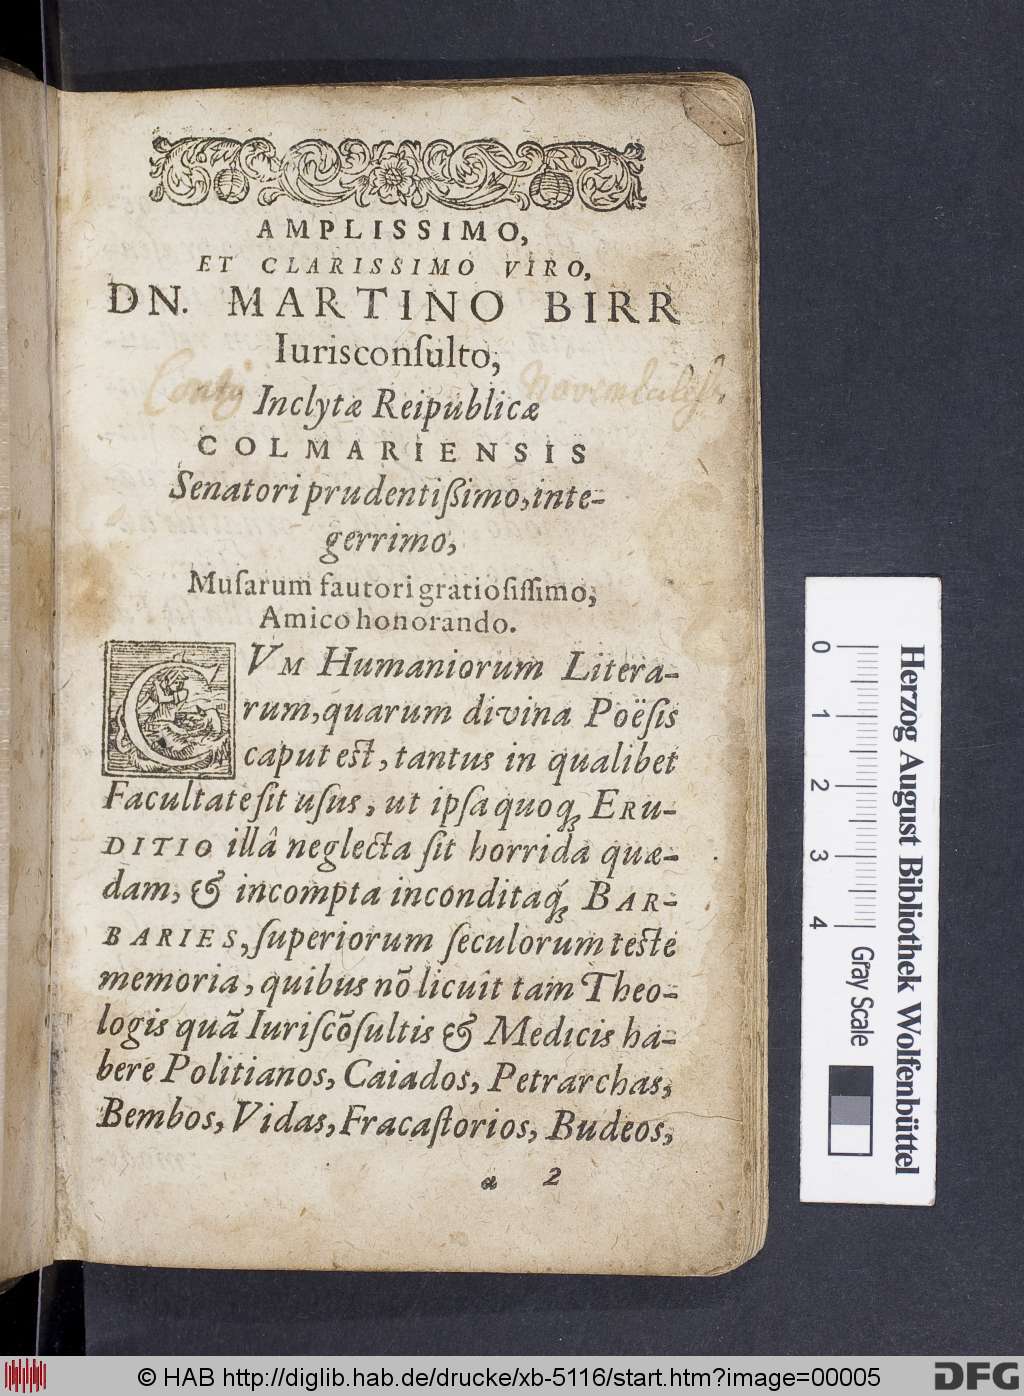 AMPLISSIMO,
ET CLARISSIMO VIRO,
DN. MARTINO BIRR
Iurisconſulto,
Inclytæ Reipublicæ
COLMARIENSIS
Senatori prudentißimo, inte-
gerrimo,
Muſarum fautori gratioſiſſimo,
Amico honorando.
CVM Humaniorum Litera-
rum, quarum divina Poëſis
caput est, tantus in qualibet
Facultate ſit uſus, ut ipſa quoq́ꝫ ERU-
DITIO illâ neglecta ſit horrida quæ-
dam, & incompta inconditaq́ꝫ BAR-
BARIES, ſuperiorum ſeculorum teste
memoria, quibus nõ licuit tam Theo-
logis quã Iuriſcõſultis & Medicis ha-
bere Politianos, Caiados, Petrarchas,
Bembos, Vidas, Fracaſtorios, Budeos,
a 2
0 1 2 3 4
Gray Scale
Herzog August Bibliothek Wolfenbüttel
© HAB http://diglib.hab.de/drucke/xb-5116/start.htm?image=00005
DFG